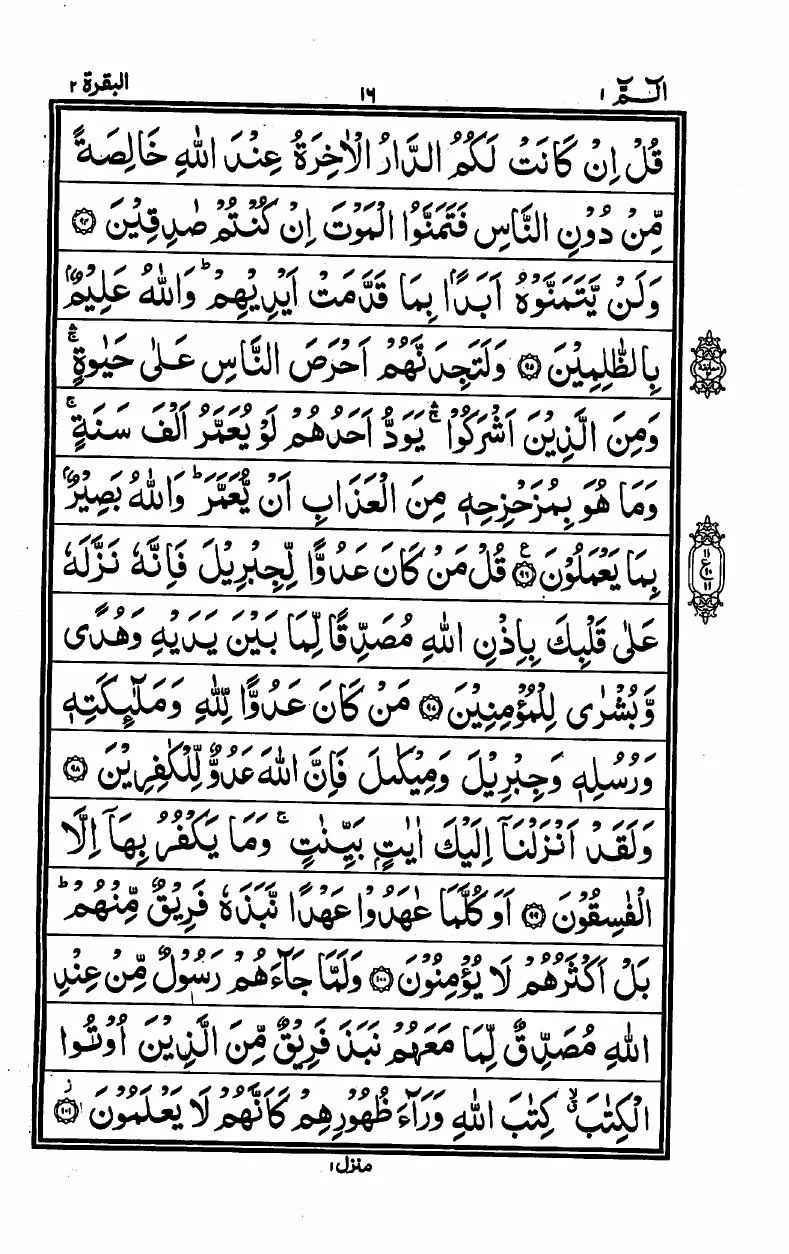 الٓـمّٓ ١
١٦
البقرة ٢
قُلْ اِنْ كَانَتْ لَكُمُ الدَّارُ الْاٰخِرَةُ عِنْدَ اللّٰهِ خَالِصَةً
مِّنْ دُوْنِ النَّاسِ فَتَمَنَّوُا الْمَوْتَ اِنْ كُنْتُمْ صٰدِقِيْنَ ﴿٩٤﴾
وَلَنْ يَّتَمَنَّوْهُ اَبَدًۢا بِمَا قَدَّمَتْ اَيْدِيْهِمْ ؕ وَاللّٰهُ عَلِيْمٌۢ
بِالظّٰلِمِيْنَ ﴿٩٥﴾ وَلَتَجِدَنَّهُمْ اَحْرَصَ النَّاسِ عَلٰى حَيٰوةٍ ۛۚ
وَمِنَ الَّذِيْنَ اَشْرَكُوْا ۛۚ يَوَدُّ اَحَدُهُمْ لَوْ يُعَمَّرُ اَلْفَ سَنَةٍ ۚ
وَمَا هُوَ بِمُزَحْزِحِهٖ مِنَ الْعَذَابِ اَنْ يُّعَمَّرَ ؕ وَاللّٰهُ بَصِيْرٌۢ
بِمَا يَعْمَلُوْنَ ﴿٩٦﴾ ع قُلْ مَنْ كَانَ عَدُوًّا لِّجِبْرِيْلَ فَاِنَّهٗ نَزَّلَهٗ
عَلٰى قَلْبِكَ بِاِذْنِ اللّٰهِ مُصَدِّقًا لِّمَا بَيْنَ يَدَيْهِ وَهُدًى
وَّبُشْرٰى لِلْمُؤْمِنِيْنَ ﴿٩٧﴾ مَنْ كَانَ عَدُوًّا لِّلّٰهِ وَمَلٰٓئِكَتِهٖ
وَرُسُلِهٖ وَجِبْرِيْلَ وَمِيْكٰىلَ فَاِنَّ اللّٰهَ عَدُوٌّ لِّلْكٰفِرِيْنَ ﴿٩٨﴾
وَلَقَدْ اَنْزَلْنَاۤ اِلَيْكَ اٰيٰتٍۭ بَيِّنٰتٍ ۚ وَمَا يَكْفُرُ بِهَاۤ اِلَّا
الْفٰسِقُوْنَ ﴿٩٩﴾ اَوَكُلَّمَا عٰهَدُوْا عَهْدًا نَّبَذَهٗ فَرِيْقٌ مِّنْهُمْ ؕ
بَلْ اَكْثَرُهُمْ لَا يُؤْمِنُوْنَ ﴿١٠٠﴾ وَلَمَّا جَآءَهُمْ رَسُوْلٌ مِّنْ عِنْدِ
اللّٰهِ مُصَدِّقٌ لِّمَا مَعَهُمْ نَبَذَ فَرِيْقٌ مِّنَ الَّذِيْنَ اُوْتُوا
الْكِتٰبَ ۙۗ كِتٰبَ اللّٰهِ وَرَآءَ ظُهُوْرِهِمْ كَاَنَّهُمْ لَا يَعْلَمُوْنَ ﴿١٠١﴾ ز
منزل ١